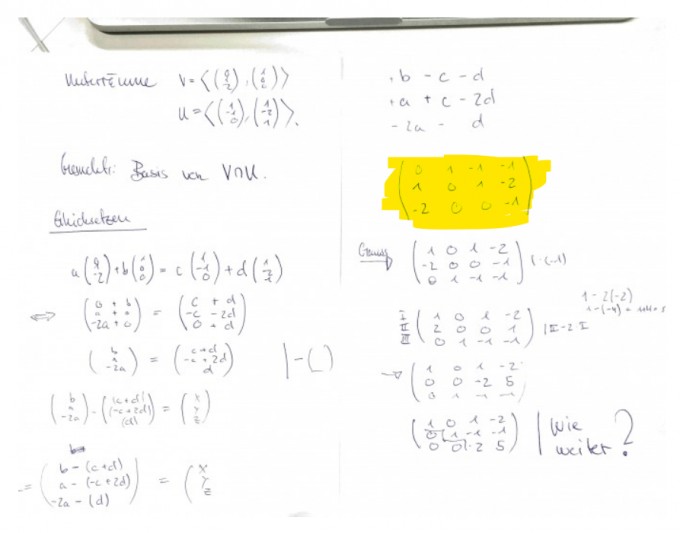 Unterräume V = ⟨(0 1 -2), (1 0 0)⟩
U = ⟨(1 -1 0), (1 -2 1)⟩.
Gesucht: Basis von V∩U.
Gleichsetzen
a(0 1 -2) + b(1 0 0) = c(1 -1 0) + d(1 -2 1)
⇔ (0 + b, a + 0, -2a + 0) = (c + d, -c - 2d, 0 + d)
(b, a, -2a) = (c+d, -c+2d, d) | -( )
(b, a, -2a) - ((c+d), (-c+2d), (d)) = (x, y, z)
= (b - (c+d), a - (-c+2d), -2a - (d)) = (x, y, z)
+b - c - d
+a + c - 2d
-2a - d
0 1 -1 -1
1 0 1 -2
-2 0 0 -1
Gauss
1 0 1 -2
-2 0 0 -1 | ·(-1)
0 1 -1 -1
1 - 2(-2)
I 1 0 1 -2
II 2 0 0 1 | II-2 I
III 0 1 -1 -1
→ 1 0 1 -2
0 0 -2 5
0 1 -1 -1
1 0 1 -2
0 1 -1 -1
0 0 -2 5
| Wie
weiter?